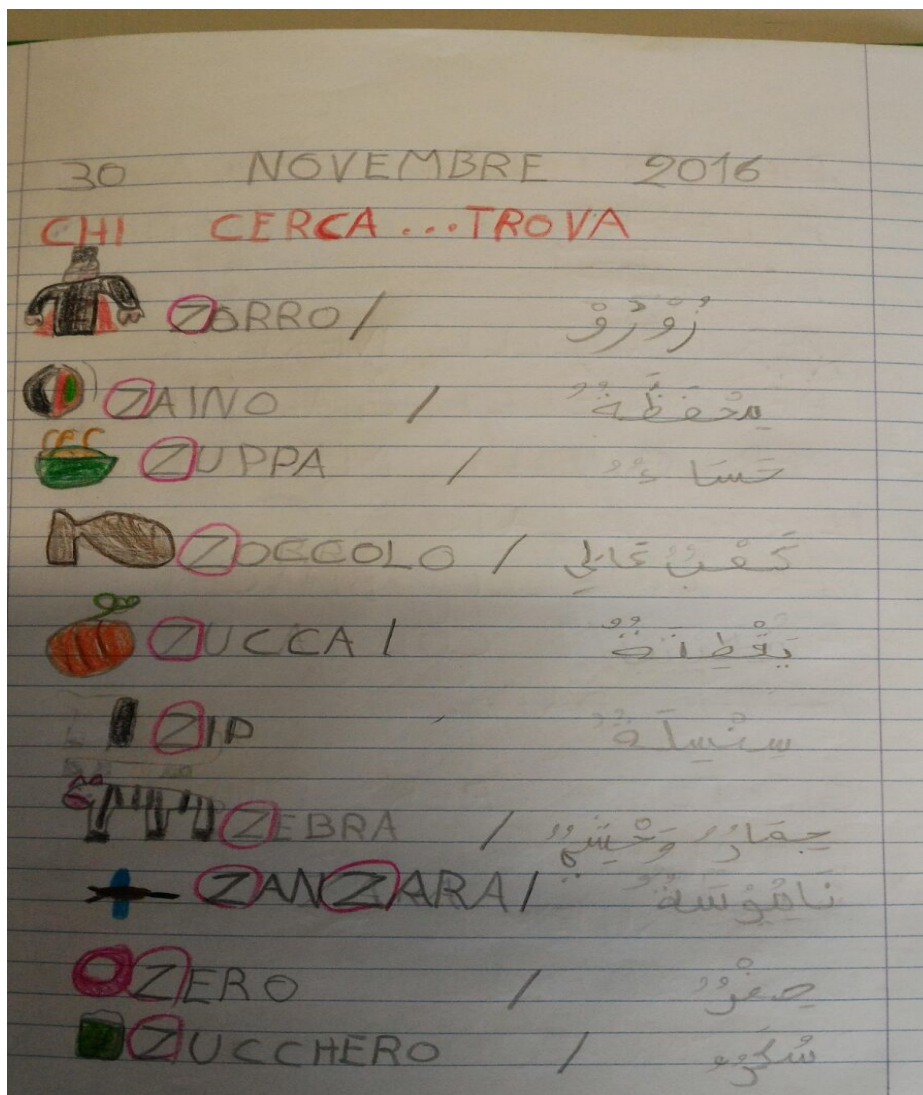 30 NOVEMBRE 2016
CHI CERCA ... TROVA
ZORRO / زُوْرُوْ
ZAINO / مِحْفَظَةٌ
ZUPPA / حَسَاءٌ
ZOCCOLO / كَعْبٌ عَالِي
ZUCCA / يَقْطِينَةٌ
ZIP سِنْسِلَةٌ
ZEBRA / حِمَارٌ وَحْشِيٌّ
ZANZARA / نَامُوْسَةٌ
ZERO / صِفْرٌ
ZUCCHERO / سُكَّرٌ